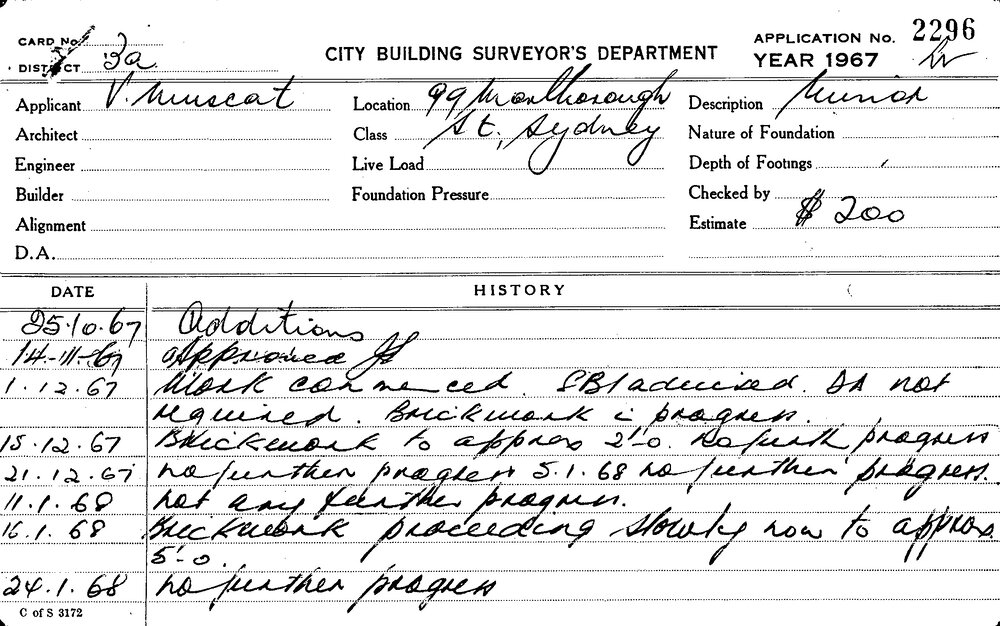 CARD No. APPLICATION No. 2296
DISTRICT 3a CITY BUILDING SURVEYOR'S DEPARTMENT YEAR 1967
Applicant V. Muscat Location 99 Marlborough Description Minor
Architect Class St, Sydney Nature of Foundation
Engineer Live Load Depth of Footings
Builder Foundation Pressure Checked by
Alignment Estimate $ 200
D.A.
DATE HISTORY
25.10.67 Additions
14-11-67 approved
1.12.67 Work commenced. SBI advised. DA not
required. Brickwork i progress.
15.12.67 Brickwork to approx 2'-0. No furth progress
21.12.67 no further progress 5.1.68 no further progress.
11.1.68 not any further progress.
16.1.68 Brickwork proceeding slowly now to approx
5'-0.
24.1.68 no further progress
C of S 3172